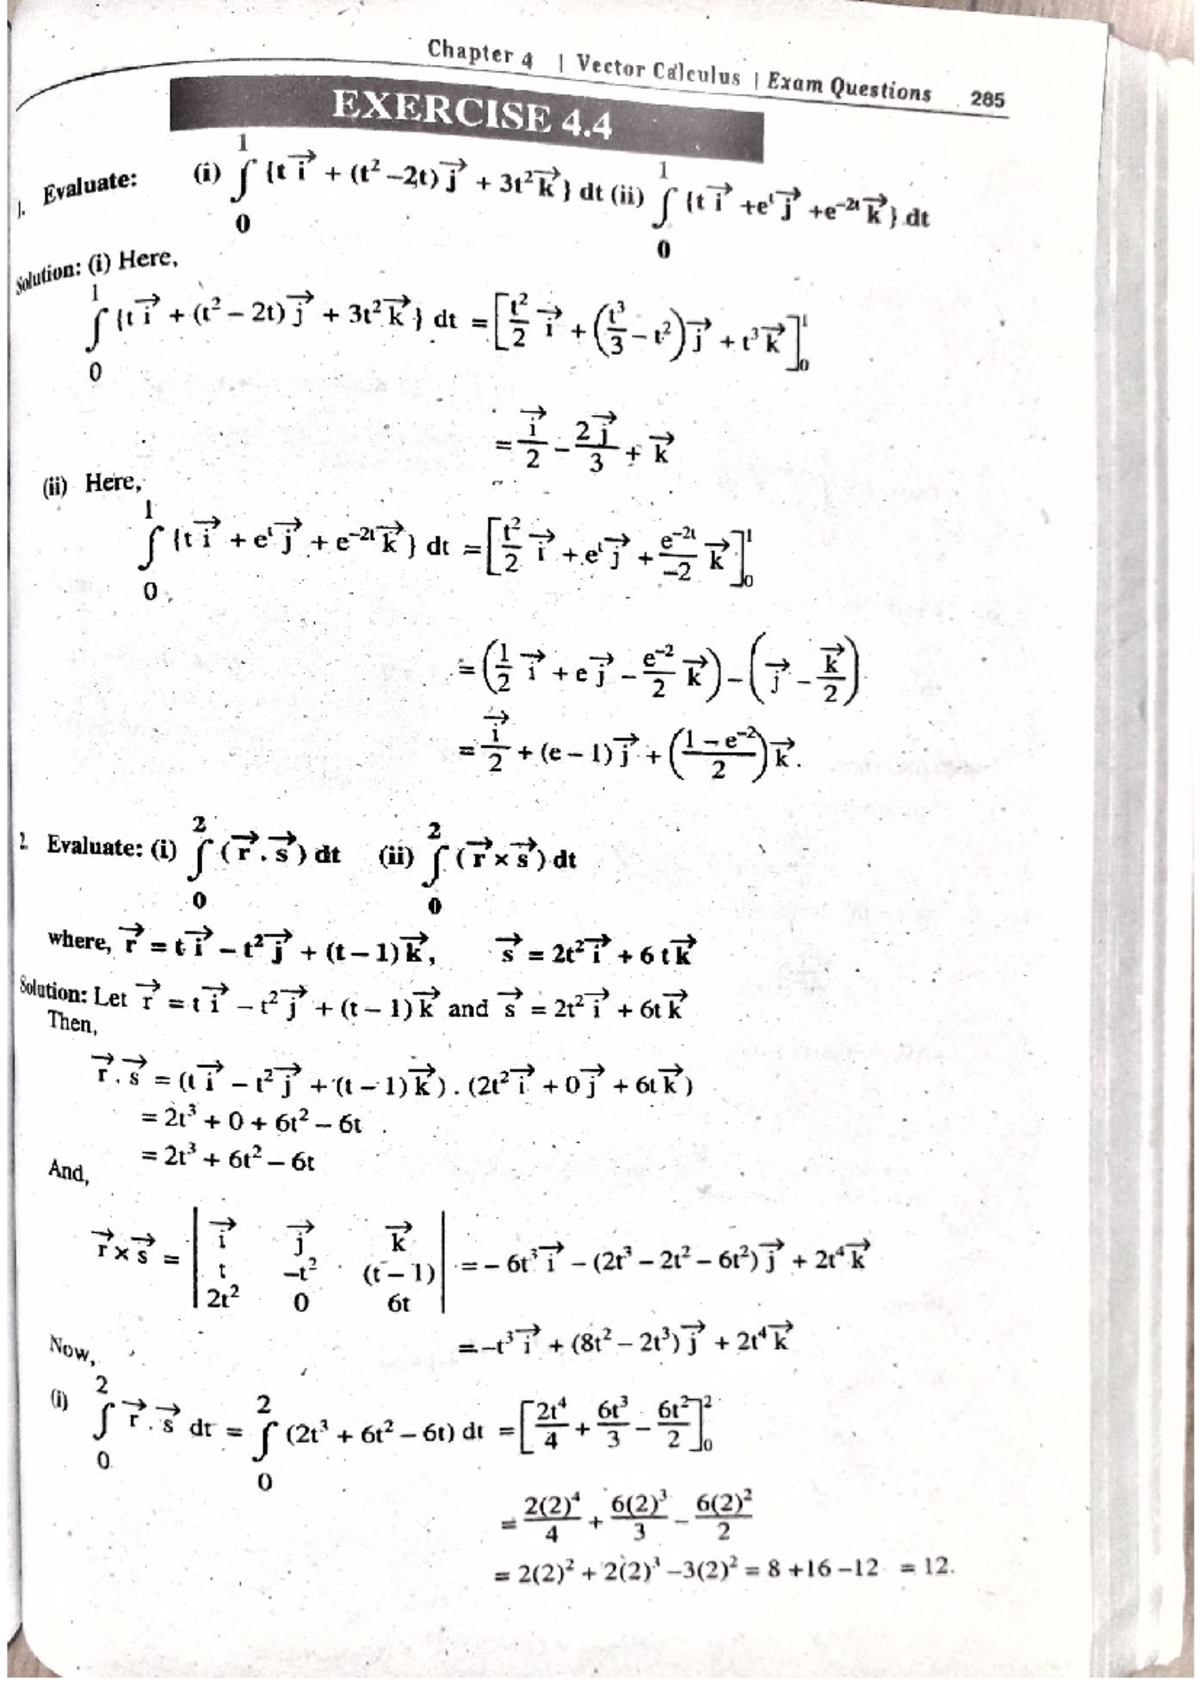 Chapter 4 | Vector Calculus | Exam Questions 285
EXERCISE 4.4
1. Evaluate: (i) ∫₀¹ {t i⃗ + (t² –2t) j⃗ + 3t² k⃗ } dt (ii) ∫₀¹ {t i⃗ +eᵗ j⃗ +e⁻²ᵗ k⃗ } dt
Solution: (i) Here,
∫₀¹ {t i⃗ + (t² – 2t) j⃗ + 3t² k⃗ } dt = [t²/2 i⃗ + (t³/3 – t²) j⃗ + t³ k⃗ ]₀¹
= i⃗/2 – 2 j⃗/3 + k⃗
(ii) Here,
∫₀¹ {t i⃗ + eᵗ j⃗ + e⁻²ᵗ k⃗ } dt = [t²/2 i⃗ + eᵗ j⃗ + e⁻²ᵗ/–2 k⃗ ]₀¹
= (1/2 i⃗ + e j⃗ – e⁻²/2 k⃗ ) – ( j⃗ – k⃗/2)
= i⃗/2 + (e – 1) j⃗ + ((1 – e⁻²)/2) k⃗ .
2. Evaluate: (i) ∫₀² ( r⃗ . s⃗ ) dt (ii) ∫₀² ( r⃗ × s⃗ ) dt
where, r⃗ = t i⃗ – t² j⃗ + (t – 1) k⃗ , s⃗ = 2t² i⃗ + 6 t k⃗
Solution: Let r⃗ = t i⃗ – t² j⃗ + (t – 1) k⃗ and s⃗ = 2t² i⃗ + 6t k⃗
Then,
r⃗ . s⃗ = (t i⃗ – t² j⃗ + (t – 1) k⃗ ) . (2t² i⃗ + 0 j⃗ + 6t k⃗ )
= 2t³ + 0 + 6t² – 6t
= 2t³ + 6t² – 6t
And,
r⃗ × s⃗ = | i⃗ j⃗ k⃗ ; t –t² (t – 1) ; 2t² 0 6t | = – 6t³ i⃗ – (2t³ – 2t² – 6t²) j⃗ + 2t⁴ k⃗
= –t³ i⃗ + (8t² – 2t³) j⃗ + 2t⁴ k⃗
Now,
(i) ∫₀² r⃗ . s⃗ dt = ∫₀² (2t³ + 6t² – 6t) dt = [2t⁴/4 + 6t³/3 – 6t²/2]₀²
= 2(2)⁴/4 + 6(2)³/3 – 6(2)²/2
= 2(2)² + 2(2)³ –3(2)² = 8 +16 –12 = 12.